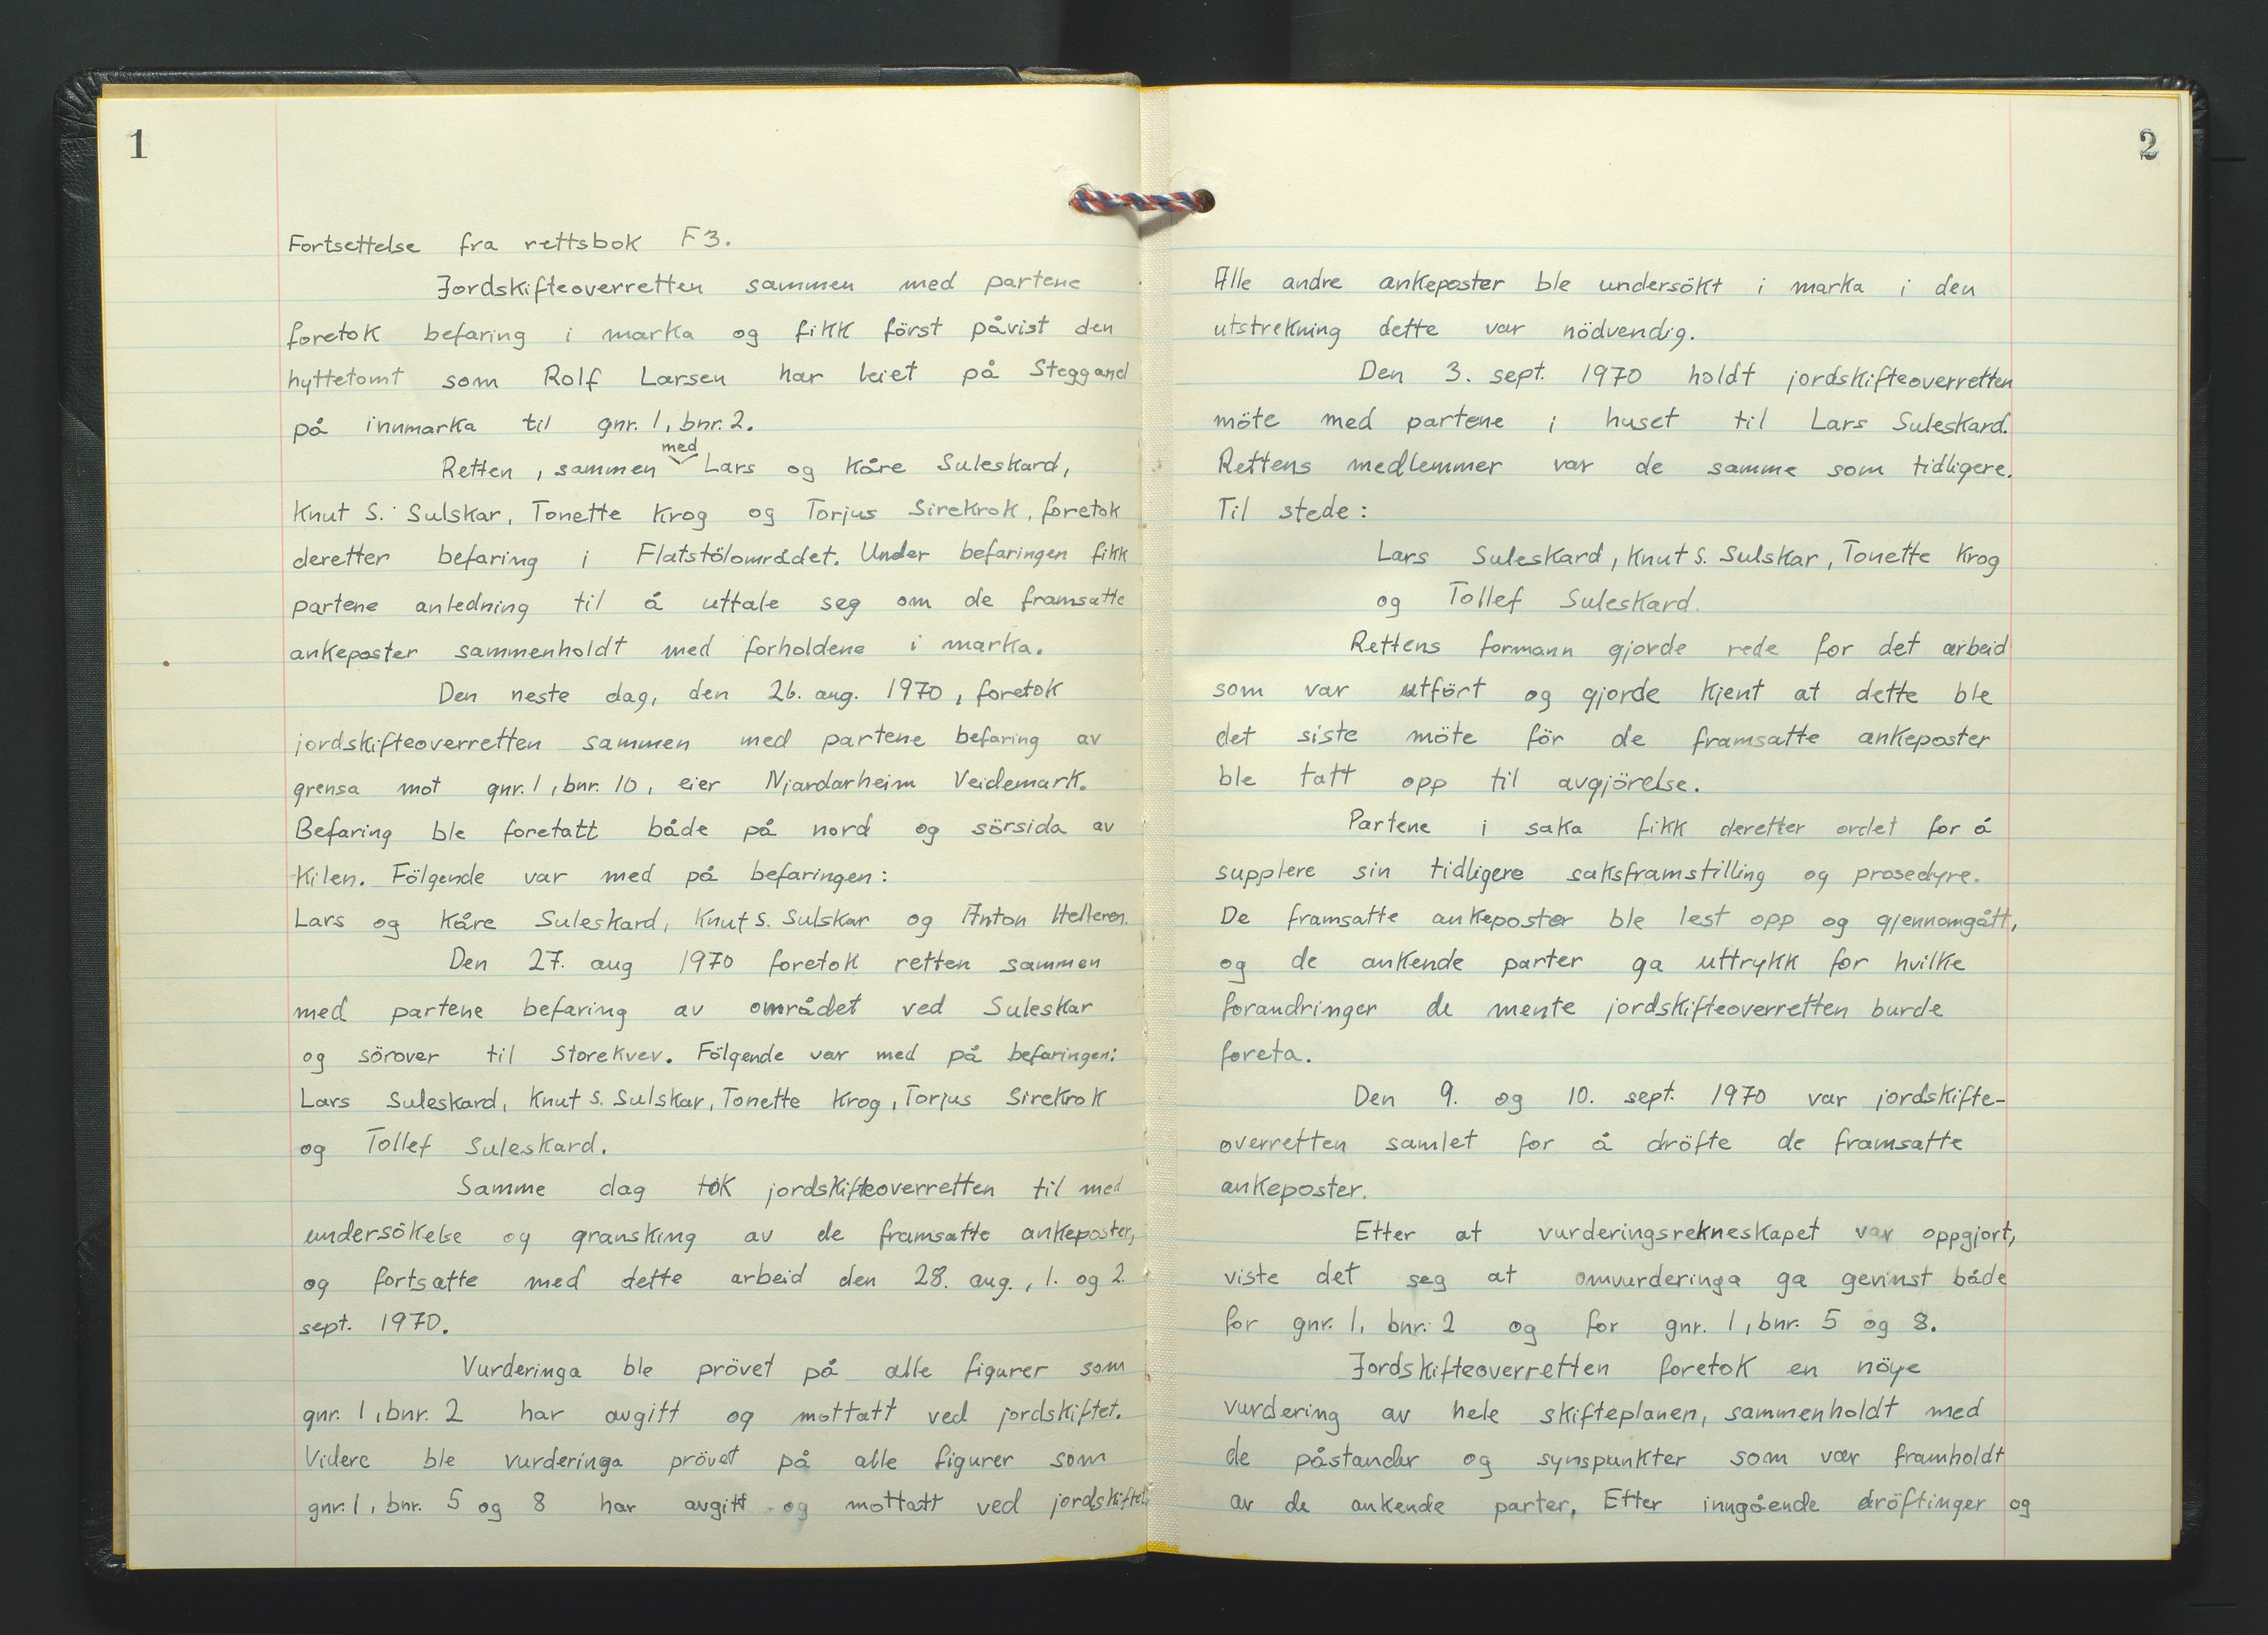 1
Fortsettelse fra rettsbok F3.
Jordskifteoverretten sammen med partene
foretok befaring i marka og fikk först påvist den
hyttetomt som Rolf Larsen har leiet på Steggand
på innmarka til gnr. 1, bnr. 2.
Retten, sammen med Lars og Kåre Suleskard,
Knut S. Sulskar, Tonette Krog og Torjus Sirekrok, foretok
deretter befaring i Flatstölområdet. Under befaringen fikk
partene anledning til å uttale seg om de framsatte
ankeposter sammenholdt med forholdene i marka.
Den neste dag, den 26. aug. 1970, foretok
jordskifteoverretten sammen med partene befaring av
grensa mot gnr. 1, bnr. 10, eier Njardarheim Veidemark.
Befaring ble foretatt både på nord og sörsida av
Kilen. Fölgende var med på befaringen:
Lars og Kåre Suleskard, Knut S. Sulskar og Anton Helleren.
Den 27. aug 1970 foretok retten sammen
med partene befaring av området ved Suleskar
og sörover til Storekvev. Fölgende var med på befaringen:
Lars Suleskard, Knut S. Sulskar, Tonette Krog, Torjus Sirekrok
og Tollef Suleskard.
Samme dag tok jordskifteoverretten til med
undersökelse og gransking av de framsatte ankeposter,
og fortsatte med dette arbeid den 28. aug., 1. og 2.
sept. 1970.
Vurderinga ble prövet på alle figurer som
gnr. 1, bnr. 2 har avgitt og mottatt ved jordskiftet.
Videre ble vurderinga prövet på alle figurer som
gnr. 1, bnr. 5 og 8 har avgitt og mottatt ved jordskiftet.
2
Alle andre ankeposter ble undersökt i marka i den
utstrekning dette var nödvendig.
Den 3. sept. 1970 holdt jordskifteoverretten
möte med partene i huset til Lars Suleskard.
Rettens medlemmer var de samme som tidligere.
Til stede:
Lars Suleskard, Knut S. Sulskar, Tonette Krog
og Tollef Suleskard.
Rettens formann gjorde rede for det arbeid
som var utfört og gjorde kjent at dette ble
det siste möte för de framsatte ankeposter
ble tatt opp til avgjörelse.
Partene i saka fikk deretter ordet for å
supplere sin tidligere saksframstilling og prosedyre.
De framsatte ankeposter ble lest opp og gjennomgått,
og de ankende parter ga uttrykk for hvilke
forandringer de mente jordskifteoverretten burde
foreta.
Den 9. og 10. sept. 1970 var jordskifte-
overretten samlet for å dröfte de framsatte
ankeposter.
Etter at vurderingsrekneskapet var oppgjort,
viste det seg at omvurderinga ga gevinst både
for gnr. 1, bnr. 2 og for gnr. 1, bnr. 5 og 8.
Jordskifteoverretten foretok en nöye
vurdering av hele skifteplanen, sammenholdt med
de påstander og synspunkter som var framholdt
av de ankende parter. Etter inngående dröftinger og